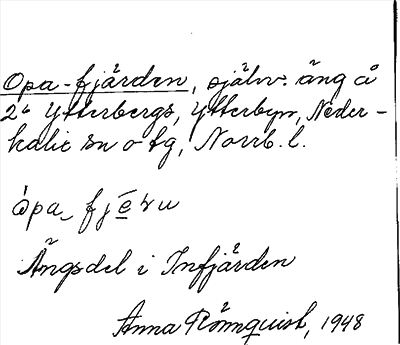 Opa-fjärden, självv. äng å
2a Ytterbergs, Ytterbyn, Neder-
kalix sn o tg, Norrb. l.
òpa fjēṛu
Ängsdel i Infjärden
Anna Rönnquist, 1948